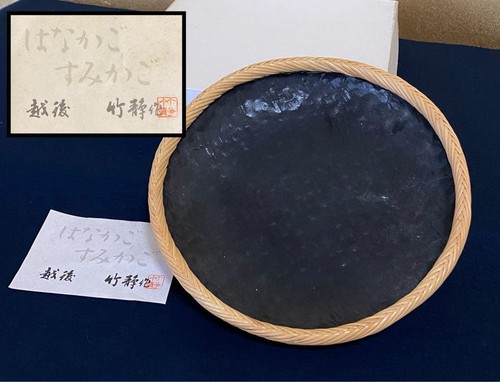 はなかご
すみかご
越後 竹静作
はなかご
すみかご
越後 竹静作